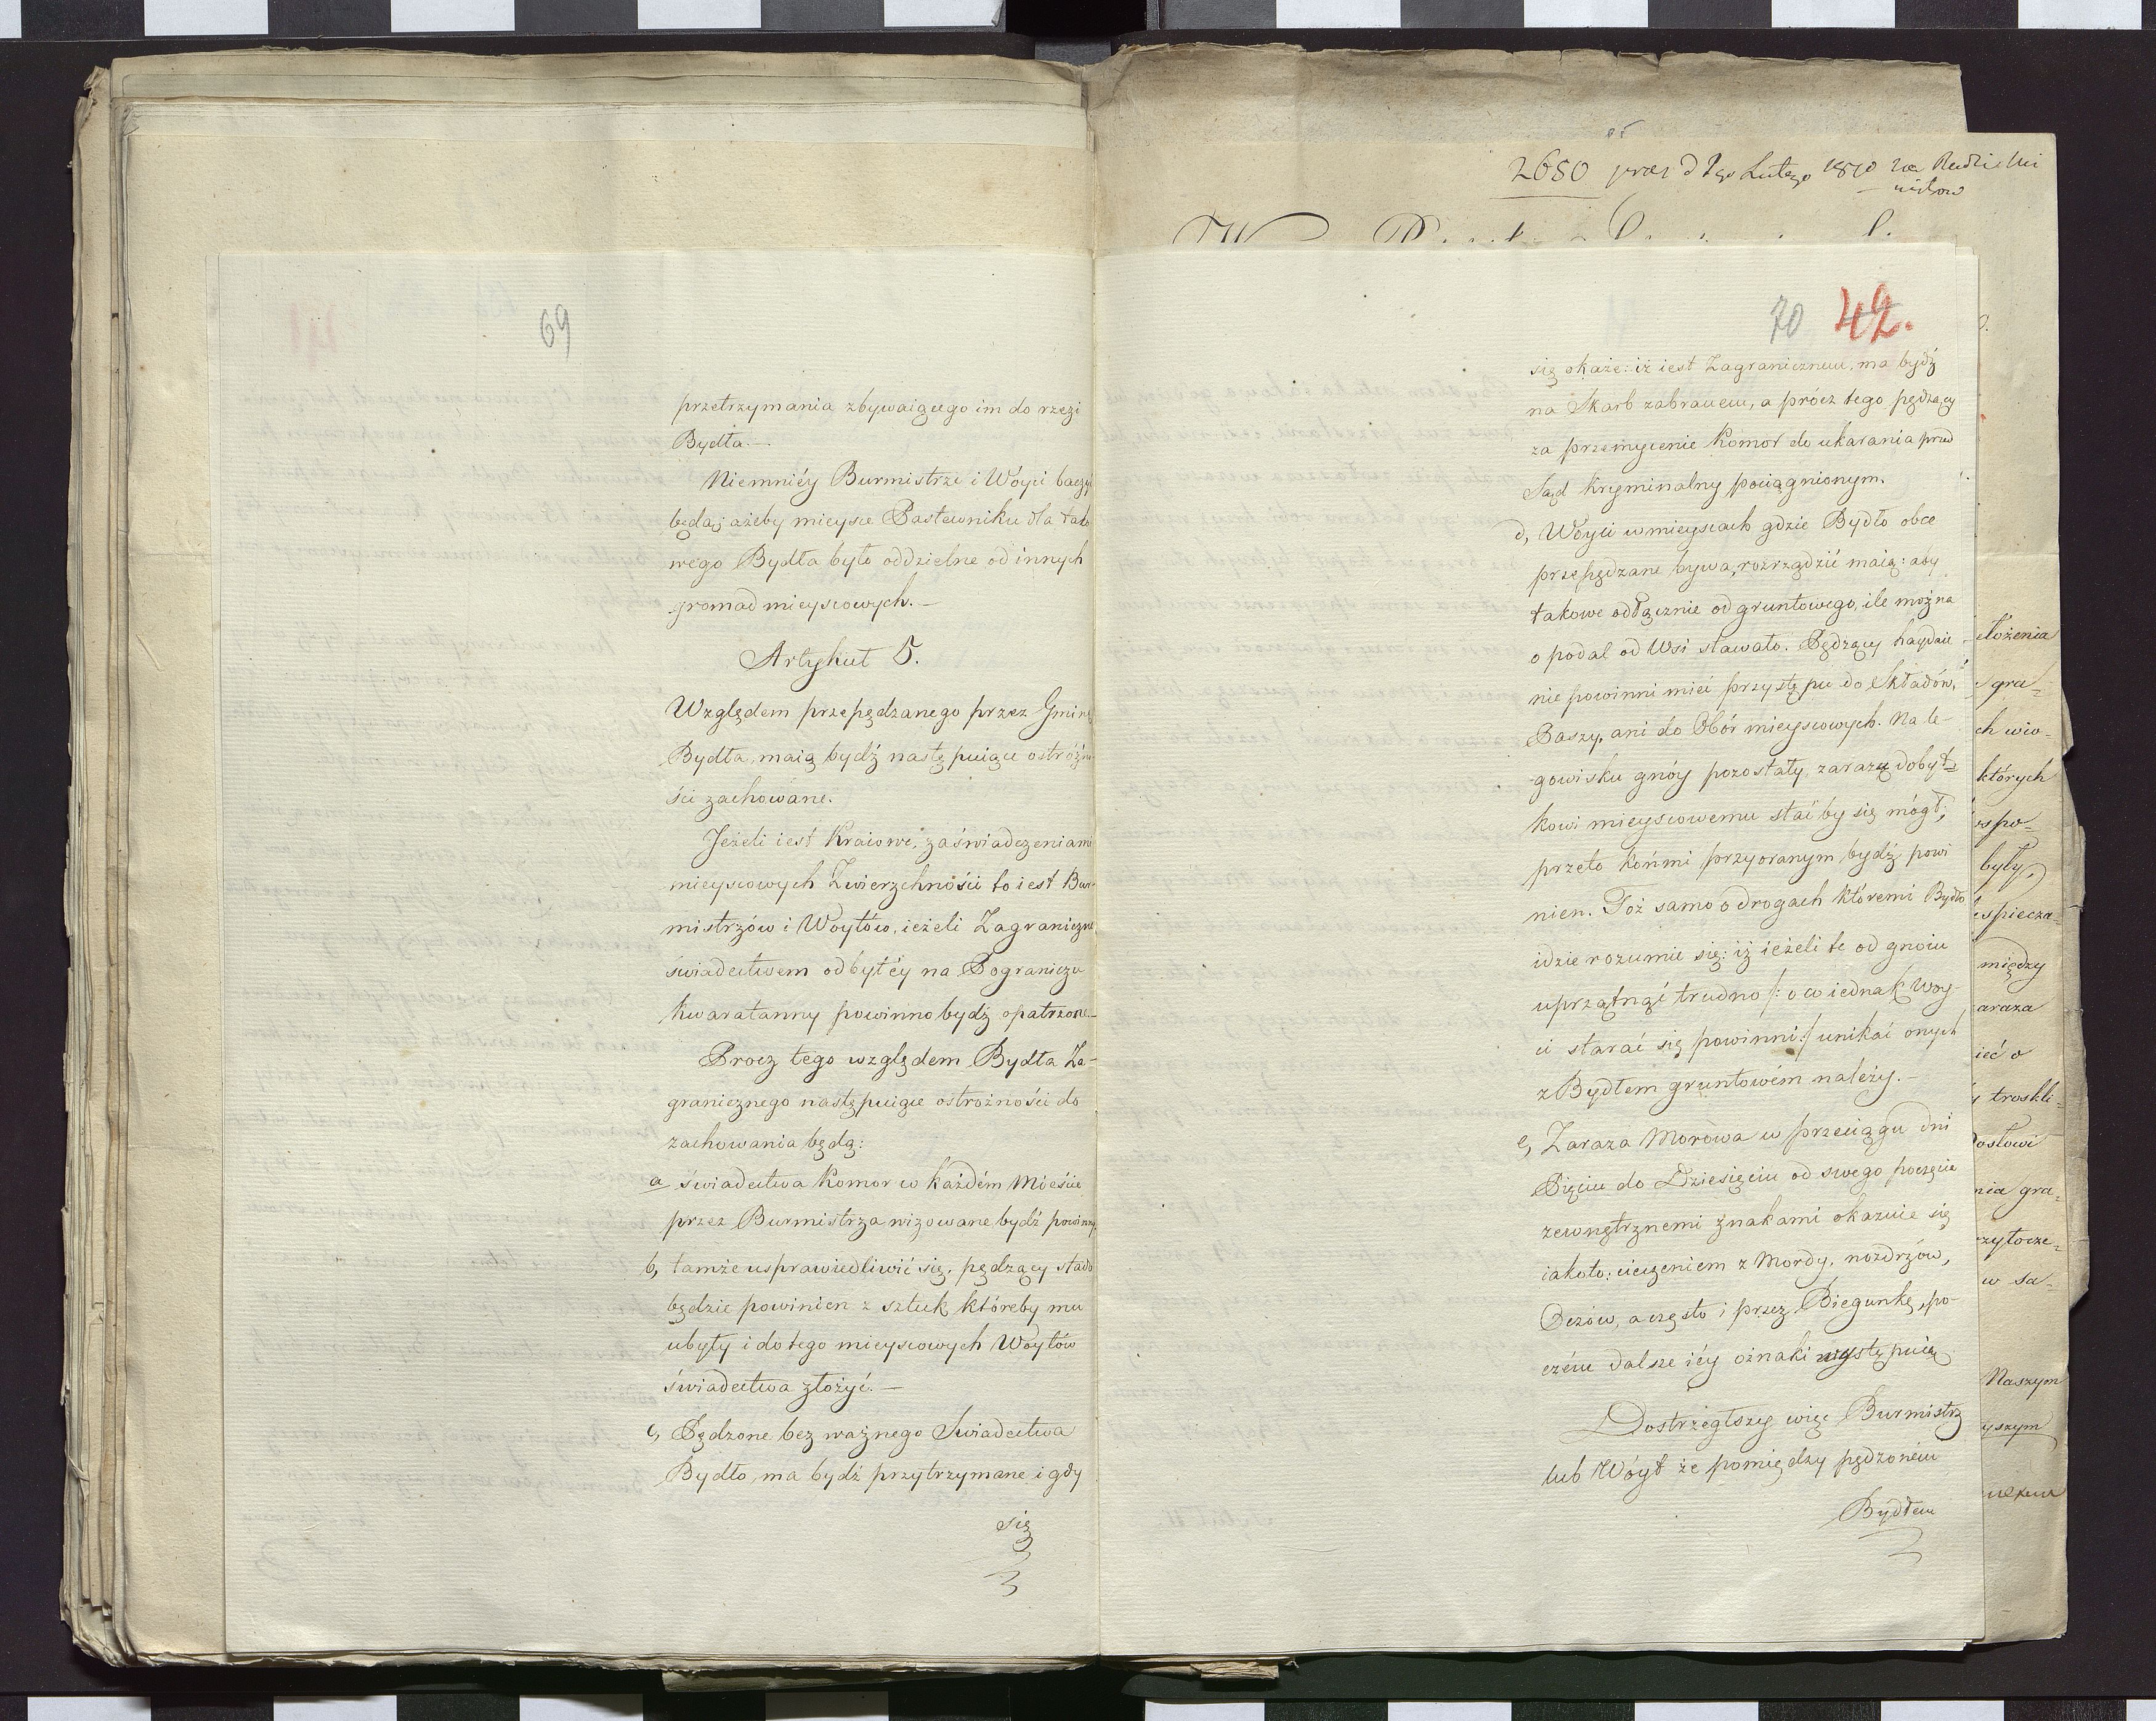 69
przetrzymania zbywaiącego im do rzezi
Bydła.—
Niemniéy Burmistrze i Wóyci baczyć
będą; ażeby mieysce Pastewniku dla tako
wego Bydła było oddzielne od innych
gromad mieyscowych.—
Artykuł 5.
Względem przepędzanego przez Gminę
Bydła, maią bydź następuiące ostróżno
ści zachowane.
Jeżeli iest Kraiowe, zaświadczeniami
mieyscowych Zwierzchności to iest Bur-
mistrzów i Woytów, ieżeli Zagraniczne
świadectwem odbytéy na Pograniczu
Kwaratanny powinno bydź opatrzone.—
Procz tego względem Bydła Za-
granicznego następuiące ostrożności do
zachowania będą:
a świadectwa Komor w każdém Mieście
przez Burmistrza wizowane bydź powinny.
b, tamże usprawiedliwić się, pędzący stado
będzie powinien z sztuk któreby mu
ubyły i do tego mieyscowych Woytów
świadectwa złożyć.—
c, Pędzone bez ważnego Swiadectwa
Bydło, ma bydź przytrzymane i gdy
się
2680 1810
70 42.
się okaże: iż iest Zagranicznem, ma bydź
na Skarb zabranem, a prócz tego pędzący
za przemycenie Komor do ukarania przed
Sąd kryminalny pociągnionym.
d, Woyci w mieyscach gdzie Bydło obce
przepędzane bywa, rozrządzić maią: aby
takowe odłącznie od gruntowego, ile można
opodal od Wsi stawało. Pędzący haydaie
nie powinni mieć przystępu do Składów,
Paszy, ani do Obór mieyscowych. Na le-
gowisku gnóy pozostały, zarazą dobyt=
kowi mieyscowemu stać by się mógł;
przeto końmi przyoranym bydź powi
nien. Toż samo o drogach któremi Bydło
idzie rozumie się: iż ieżeli te od gnoiu
uprzątnąć trudno /: o co iednak Woy-
ci starać się powinni :/ unikać onych
z Bydłem gruntowém należy.—
e, Zaraza Morowa w przeciągu dni
Pięciu do Dziesięciu od swego poczęcia
zewnętrznemi znakami okazuie się
iakoto: cieczeniem z Mordy, nozdrzów,
Oczów, a często i przez Biegunkę, po-
czém dalsze iéy oznaki występuią.
Dostrzegłszy więc Burmistrz
lub Wóyt że pomiędzy pędzonem
Bydłem
ełożenia
gra=
których
były,
między
araza
troskli=
nia gra=
w sa=
Naszym
yszym